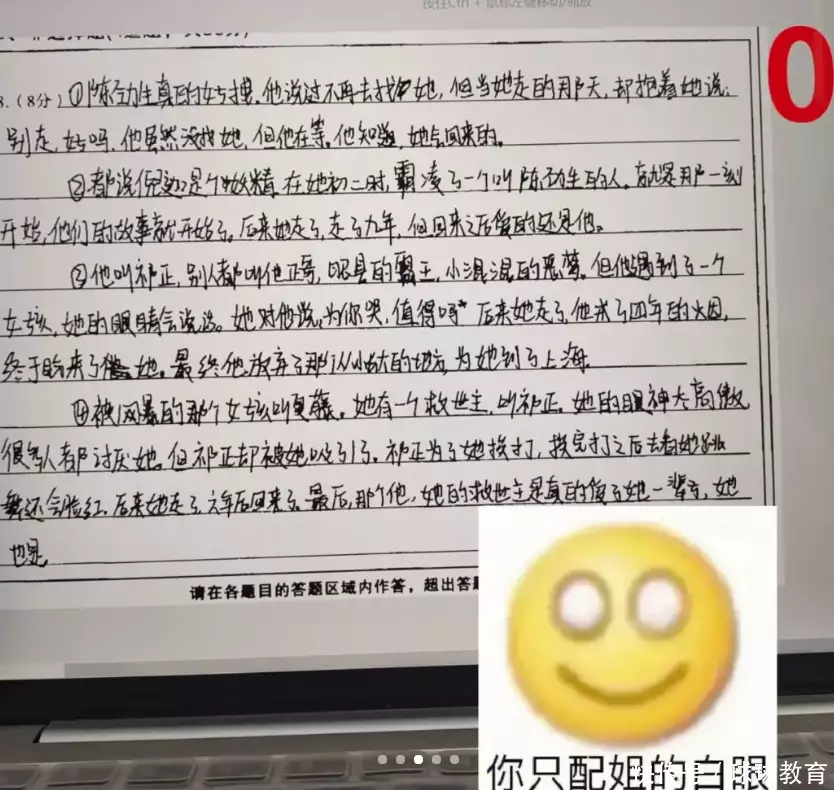 按住Ctrl +
0
8.(8分)①陈劲生真的好拽,他说过不再去找她,但当她走的那天,却抱着她说:
别走,好吗,他虽然没找她,但他在等。他知道,她会回来的。
②都说倪迦是个妖精,在她初二时,霸凌了一个叫陈劲生的人。就是那一刻
开始,他们的故事就开始了。后来她走了,走了九年,但回来之后爱的还是他。
③他叫祁正,别人都叫他正哥,眼县的霸王,小混混的恶梦。但他遇到了一个
女孩,她的眼睛会说话。她对他说,为你哭,值得吗"后来她走了,他求了四年的大因,
终于盼来了她。最终他放弃了那从小大的地方,为她到了上海。
④被网暴的那个女孩叫夏藤。她有一个救世主,叫祁正。她的眼神太高傲
很多人都讨厌她。但祁正却被她吸引了。祁正为了她挨打,挨完打之后去看她跳
舞还会脸红,后来她走了,六年后回来了。最后,那个他,她的救世主是真的爱了她一辈子,她
也是。
请在各题目的答题区域内作答,超出答
你只配姐的白眼
教育